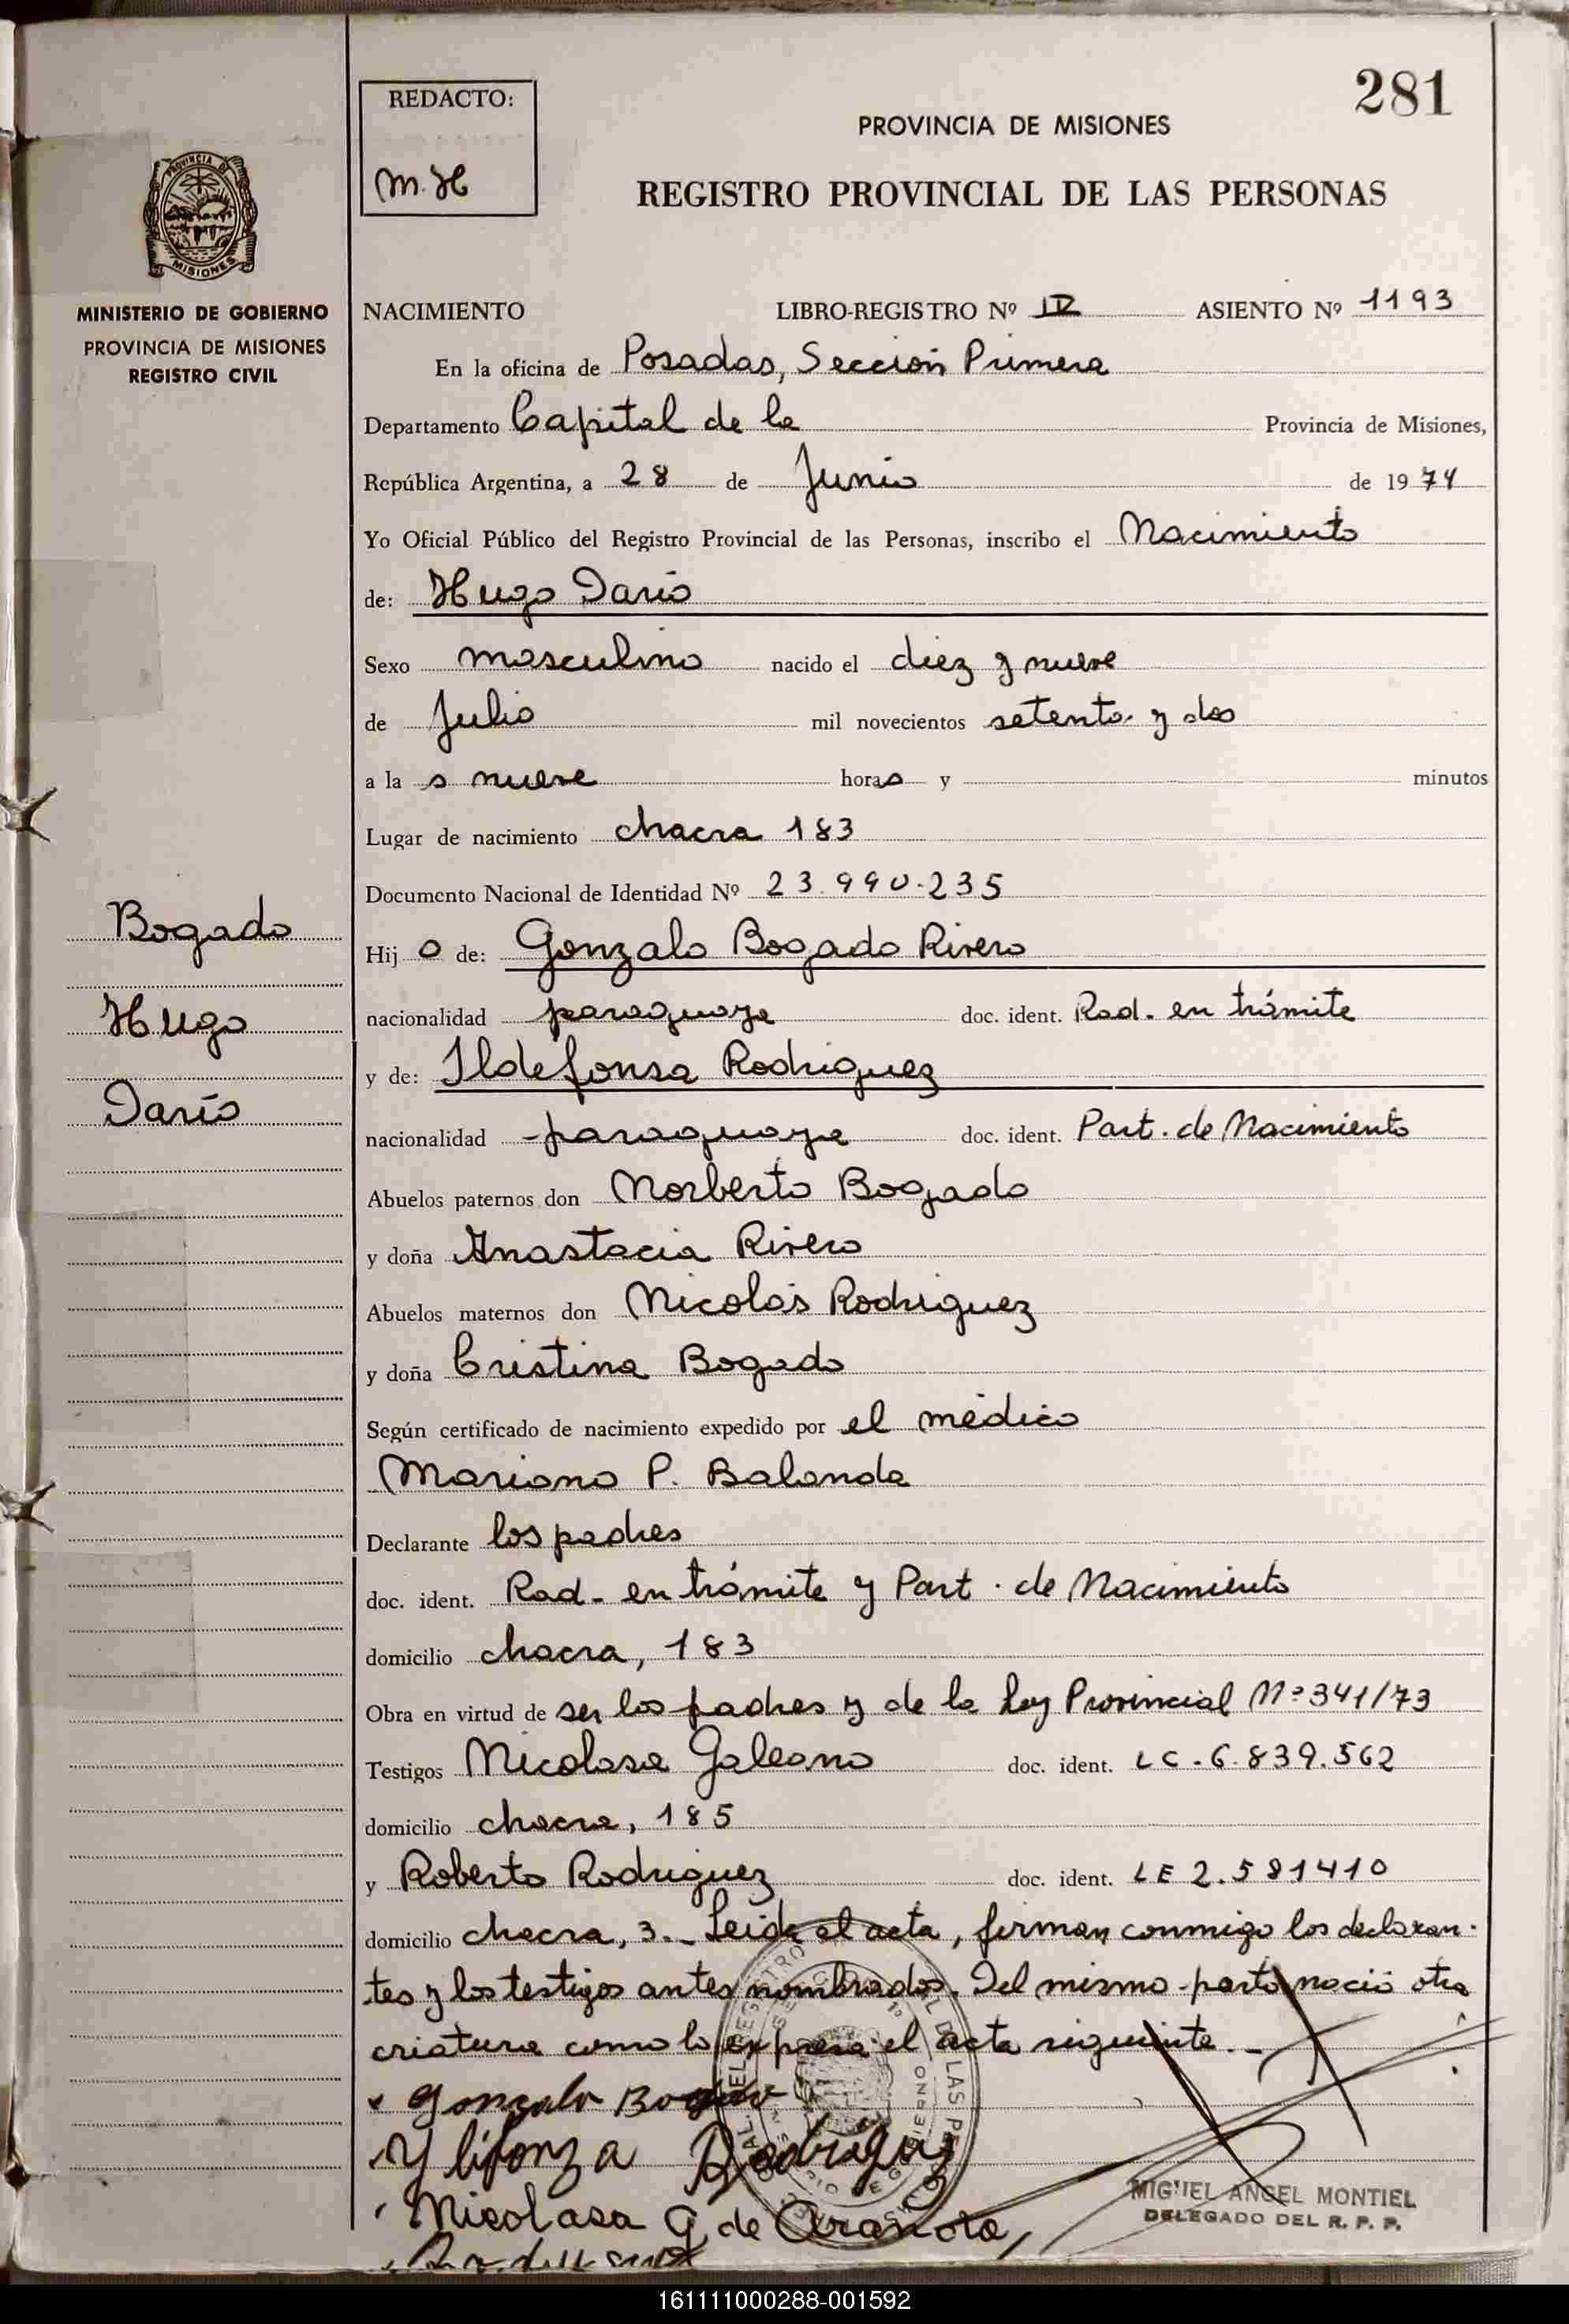 281
REDACTO:
M.H
PROVINCIA DE MISIONES
REGISTRO PROVINCIAL DE LAS PERSONAS
PROVINCIA DE
MISIONES
MINISTERIO DE GOBIERNO
PROVINCIA DE MISIONES
REGISTRO CIVIL
NACIMIENTO LIBRO-REGISTRO Nº IV ASIENTO Nº 1193
En la oficina de Posadas, Sección Primera
Departamento Capital de la Provincia de Misiones,
República Argentina, a 28 de Junio de 1974
Yo Oficial Público del Registro Provincial de las Personas, inscribo el Nacimiento
de: Hugo Darío
Sexo masculino nacido el diez y nueve
de Julio mil novecientos setenta y dos
a la s nueve horas y minutos
Lugar de nacimiento chacra 183
Documento Nacional de Identidad Nº 23.990.235
Bogado
Hugo
Darío
Hij o de: Gonzalo Bogado Rivero
nacionalidad paraguaya doc. ident. Rad. en trámite
y de: Ildefonsa Rodriguez
nacionalidad paraguaya doc. ident. Part. de Nacimiento
Abuelos paternos don Norberto Bogado
y doña Anastacia Rivero
Abuelos maternos don Nicolás Rodriguez
y doña Cristina Bogado
Según certificado de nacimiento expedido por el médico
Mariano P. Balanda
Declarante los padres
doc. ident. Rad. en trámite y Part. de Nacimiento
domicilio chacra, 183
Obra en virtud de ser los padres y de la Ley Provincial Nº 341/73
Testigos Nicolasa Galeano doc. ident. LC.6.839.562
domicilio chacra, 185
y Roberto Rodriguez doc. ident. LE 2.581410
domicilio chacra, 3._ Leída el acta, firman conmigo los declaran-
tes y los testigos antes nombrados. Del mismo parto nació otra
criatura como lo expresa el acta siguiente._
Gonzalo Bogado
Ylifonza Rodrigus
Nicolasa G de
MIGUEL ANGEL MONTIEL
DELEGADO DEL R. P. P.
161111000288-001592